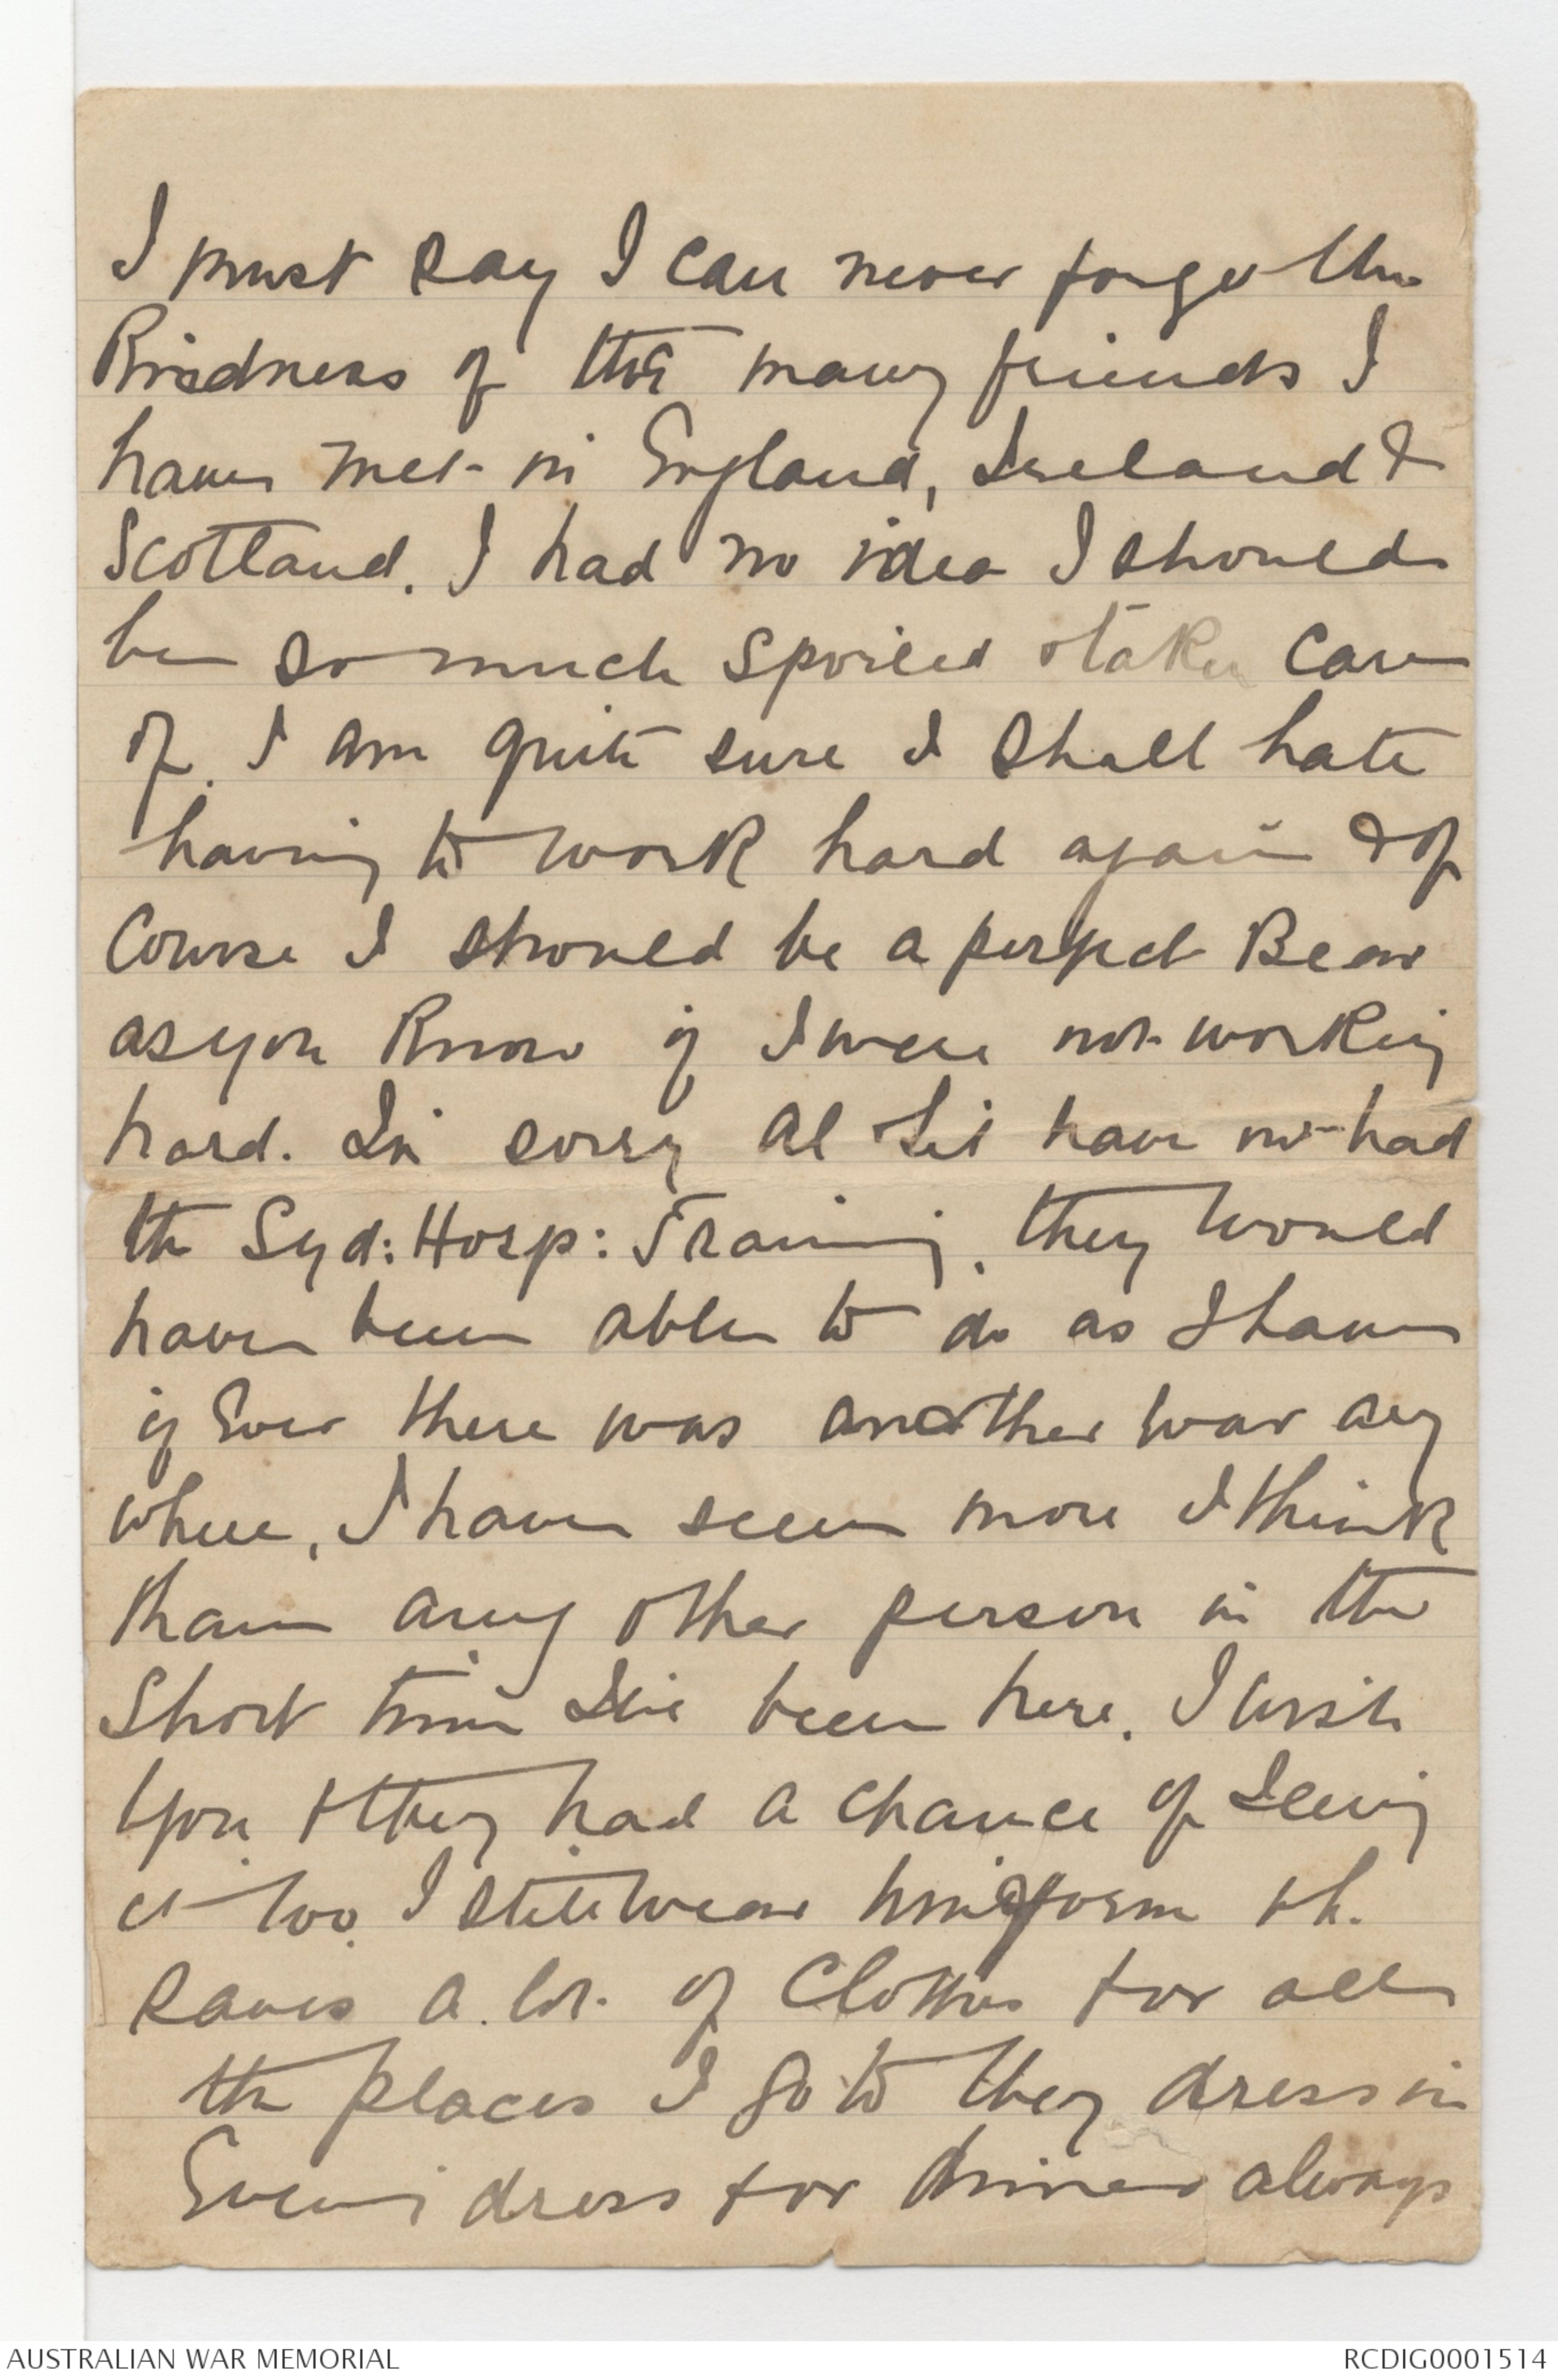 I must say I can never forget the
Kindness of the many friends I
have met in England, Ireland &
Scotland. I had no idea I should
be so much spoiled & taken care
of. I am quite sure I shall hate
having to work hard again & of
Course I should be a perfect Bear
as you Know if I were not working
hard. I'm sorry Al & Lil have not had
the Syd: Hosp: Training, they would
have been able to do as I have
if Ever there was another war any
where, I have seen more I think
than any other person in the
Short time I've been here. I wish
you & they had a chance of Seeing
it too. I still wear uniform it
saves a lot of Clothes for all
the places I go to they dress in
Evening dress for dinner always
AUSTRALIAN WAR MEMORIAL
RCDIG0001514